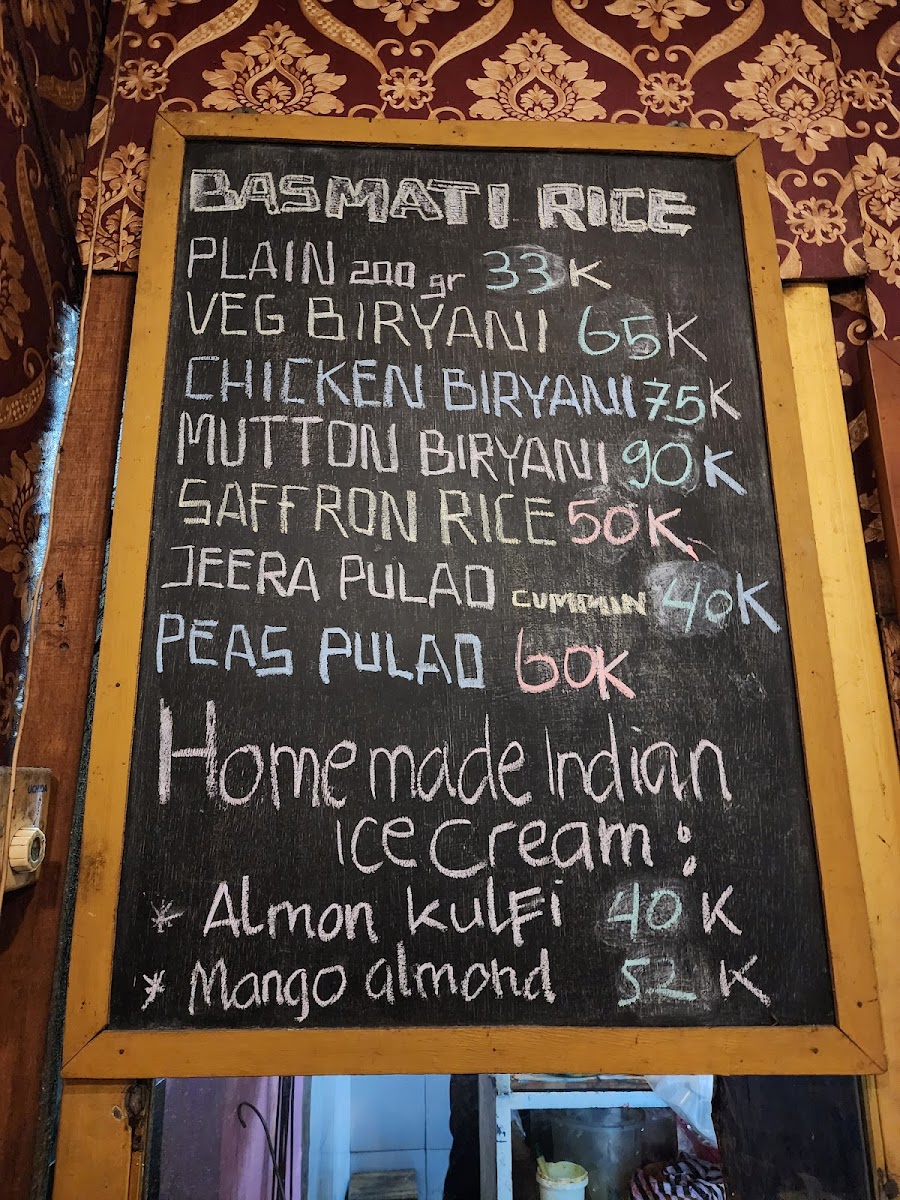 BASMATI RICE
PLAIN 200 gr 33K
VEG BIRYANI 65K
CHICKEN BIRYANI 75K
MUTTON BIRYANI 90K
SAFFRON RICE 50K
JEERA PULAO CUMMIN 40K
PEAS PULAO 60K
Homemade Indian
ice cream :
* Almon kulfi 40 K
* Mango almond 52 K